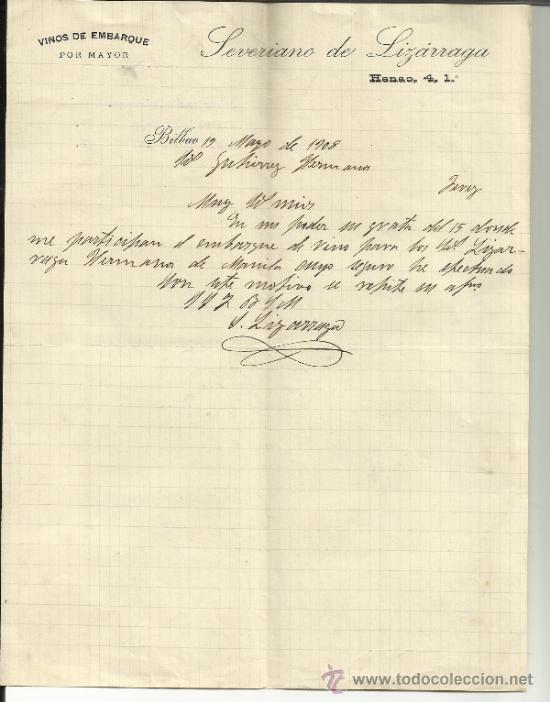 VINOS DE EMBARQUE
POR MAYOR
Severiano de Lizárraga
Henao, 4, 1.º
Bilbao 19 Mayo de 1908
Gutierrez Hermanos
Jerez
Muy mios
En mi poder su grata del 15 donde
me participan el embarque de vino para los Lizar-
raga Hermanos de Manila cuyo seguro he efectuado
Con este motivo se repite su afmo
S. Lizarraga
todocoleccion
www.todocoleccion.net